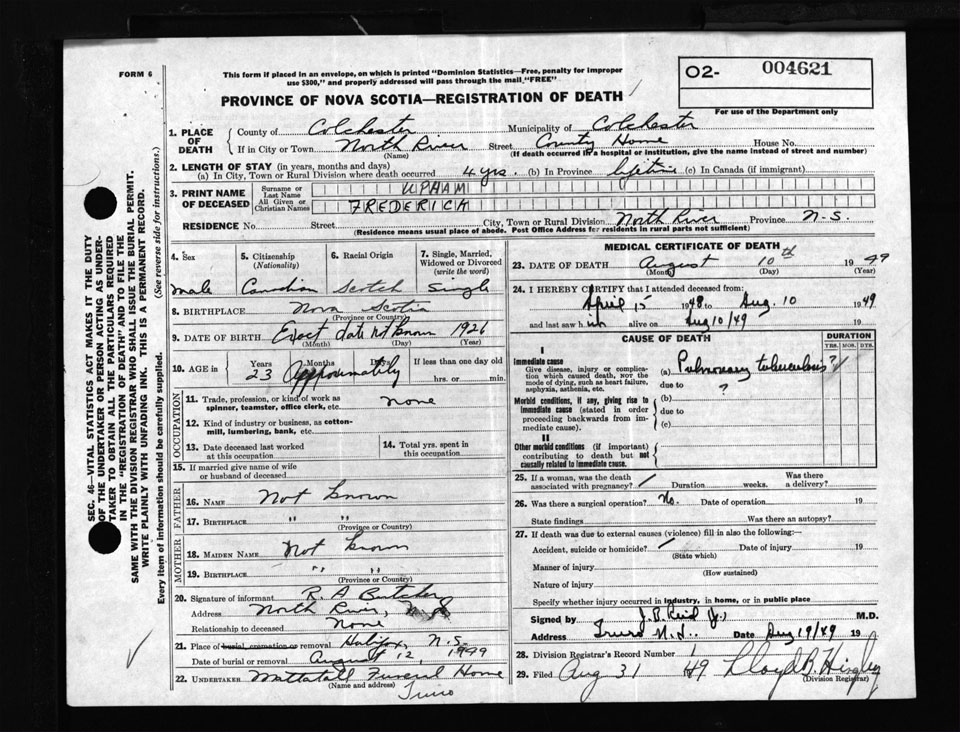 FORM 6
This form if placed in an envelope, on which is printed "Dominion Statistics—Free, penalty for improper
use $300," and properly addressed will pass through the mail "FREE"
O2- 004621
For use of the Department only
PROVINCE OF NOVA SCOTIA—REGISTRATION OF DEATH
1. PLACE OF DEATH
County of Colchester Municipality of Colchester
If in City or Town North River Street County Home House No.
(Name) (If death occurred in a hospital or institution, give the name instead of street and number)
2. LENGTH OF STAY (in years, months and days)
(a) In City, Town or Rural Division where death occurred 4 yrs. (b) In Province lifetime (c) In Canada (if immigrant)
3. PRINT NAME OF DECEASED
Surname or Last Name UPHAM
All Given or Christian Names FREDERICK
RESIDENCE No. Street City, Town or Rural Division North River Province N.S.
(Residence means usual place of abode. Post Office Address for residents in rural parts not sufficient)
4. Sex
male
5. Citizenship (Nationality)
Canadian
6. Racial Origin
Scotch
7. Single, Married, Widowed or Divorced (write the word)
Single
8. BIRTHPLACE Nova Scotia
(Province or Country)
9. DATE OF BIRTH Exact date not known 1926
(Month) (Day) (Year)
10. AGE in Years Months Days If less than one day old
23 Approximately hrs. or min.
OCCUPATION
11. Trade, profession, or kind of work as
spinner, teamster, office clerk, etc. none
12. Kind of industry or business, as cotton-
mill, lumbering, bank, etc.
13. Date deceased last worked
at this occupation
14. Total yrs. spent in
this occupation
15. If married give name of wife
or husband of deceased
FATHER
16. NAME Not known
17. BIRTHPLACE " "
(Province or Country)
MOTHER
18. MAIDEN NAME Not known
19. BIRTHPLACE " "
(Province or Country)
20. Signature of informant R. A Butcher
Address North River,
Relationship to deceased None
21. Place of burial, cremation or removal Halifax, N.S.
Date of burial or removal August 12, 1949
22. UNDERTAKER Mattatall Funeral Home
(Name and address) Truro
MEDICAL CERTIFICATE OF DEATH
23. DATE OF DEATH August 10th 1949
(Month) (Day) (Year)
24. I HEREBY CERTIFY that I attended deceased from:
April 15 1948 to Aug. 10 1949
and last saw him alive on Aug 10/49 19
CAUSE OF DEATH
DURATION
YRS. MOS. DYS.
I
Immediate cause
Give disease, injury or complica-
tion which caused death, not the
mode of dying, such as heart failure,
asphyxia, asthenia, etc.
(a) Pulmonary tuberculosis ?
due to ?
Morbid conditions, if any, giving rise to
immediate cause (stated in order
proceeding backwards from im-
mediate cause).
(b)
due to
(c)
II
Other morbid conditions (if important)
contributing to death but not
causally related to immediate cause.
25. If a woman, was the death
associated with pregnancy? Duration weeks. Was there
a delivery?
26. Was there a surgical operation? No. Date of operation 19
State findings Was there an autopsy?
27. If death was due to external causes (violence) fill in also the following:—
Accident, suicide or homicide? Date of injury 19
(State which)
Manner of injury
(How sustained)
Nature of injury
Specify whether injury occurred in industry, in home, or in public place
Signed by J. B. Reid M.D.
Address Truro N.S. Date Aug 19/49 19
28. Division Registrar's Record Number
29. Filed Aug 31 49 Lloyd B.
(Division Registrar)
SEC. 46—VITAL STATISTICS ACT MAKES IT THE DUTY
OF THE UNDERTAKER OR PERSON ACTING AS UNDER-
TAKER TO OBTAIN ALL THE PARTICULARS REQUIRED
IN THE "REGISTRATION OF DEATH" AND TO FILE THE
SAME WITH THE DIVISION REGISTRAR WHO SHALL ISSUE THE BURIAL PERMIT.
WRITE PLAINLY WITH UNFADING INK. THIS IS A PERMANENT RECORD.
Every item of information should be carefully supplied. (See reverse side for instructions.)